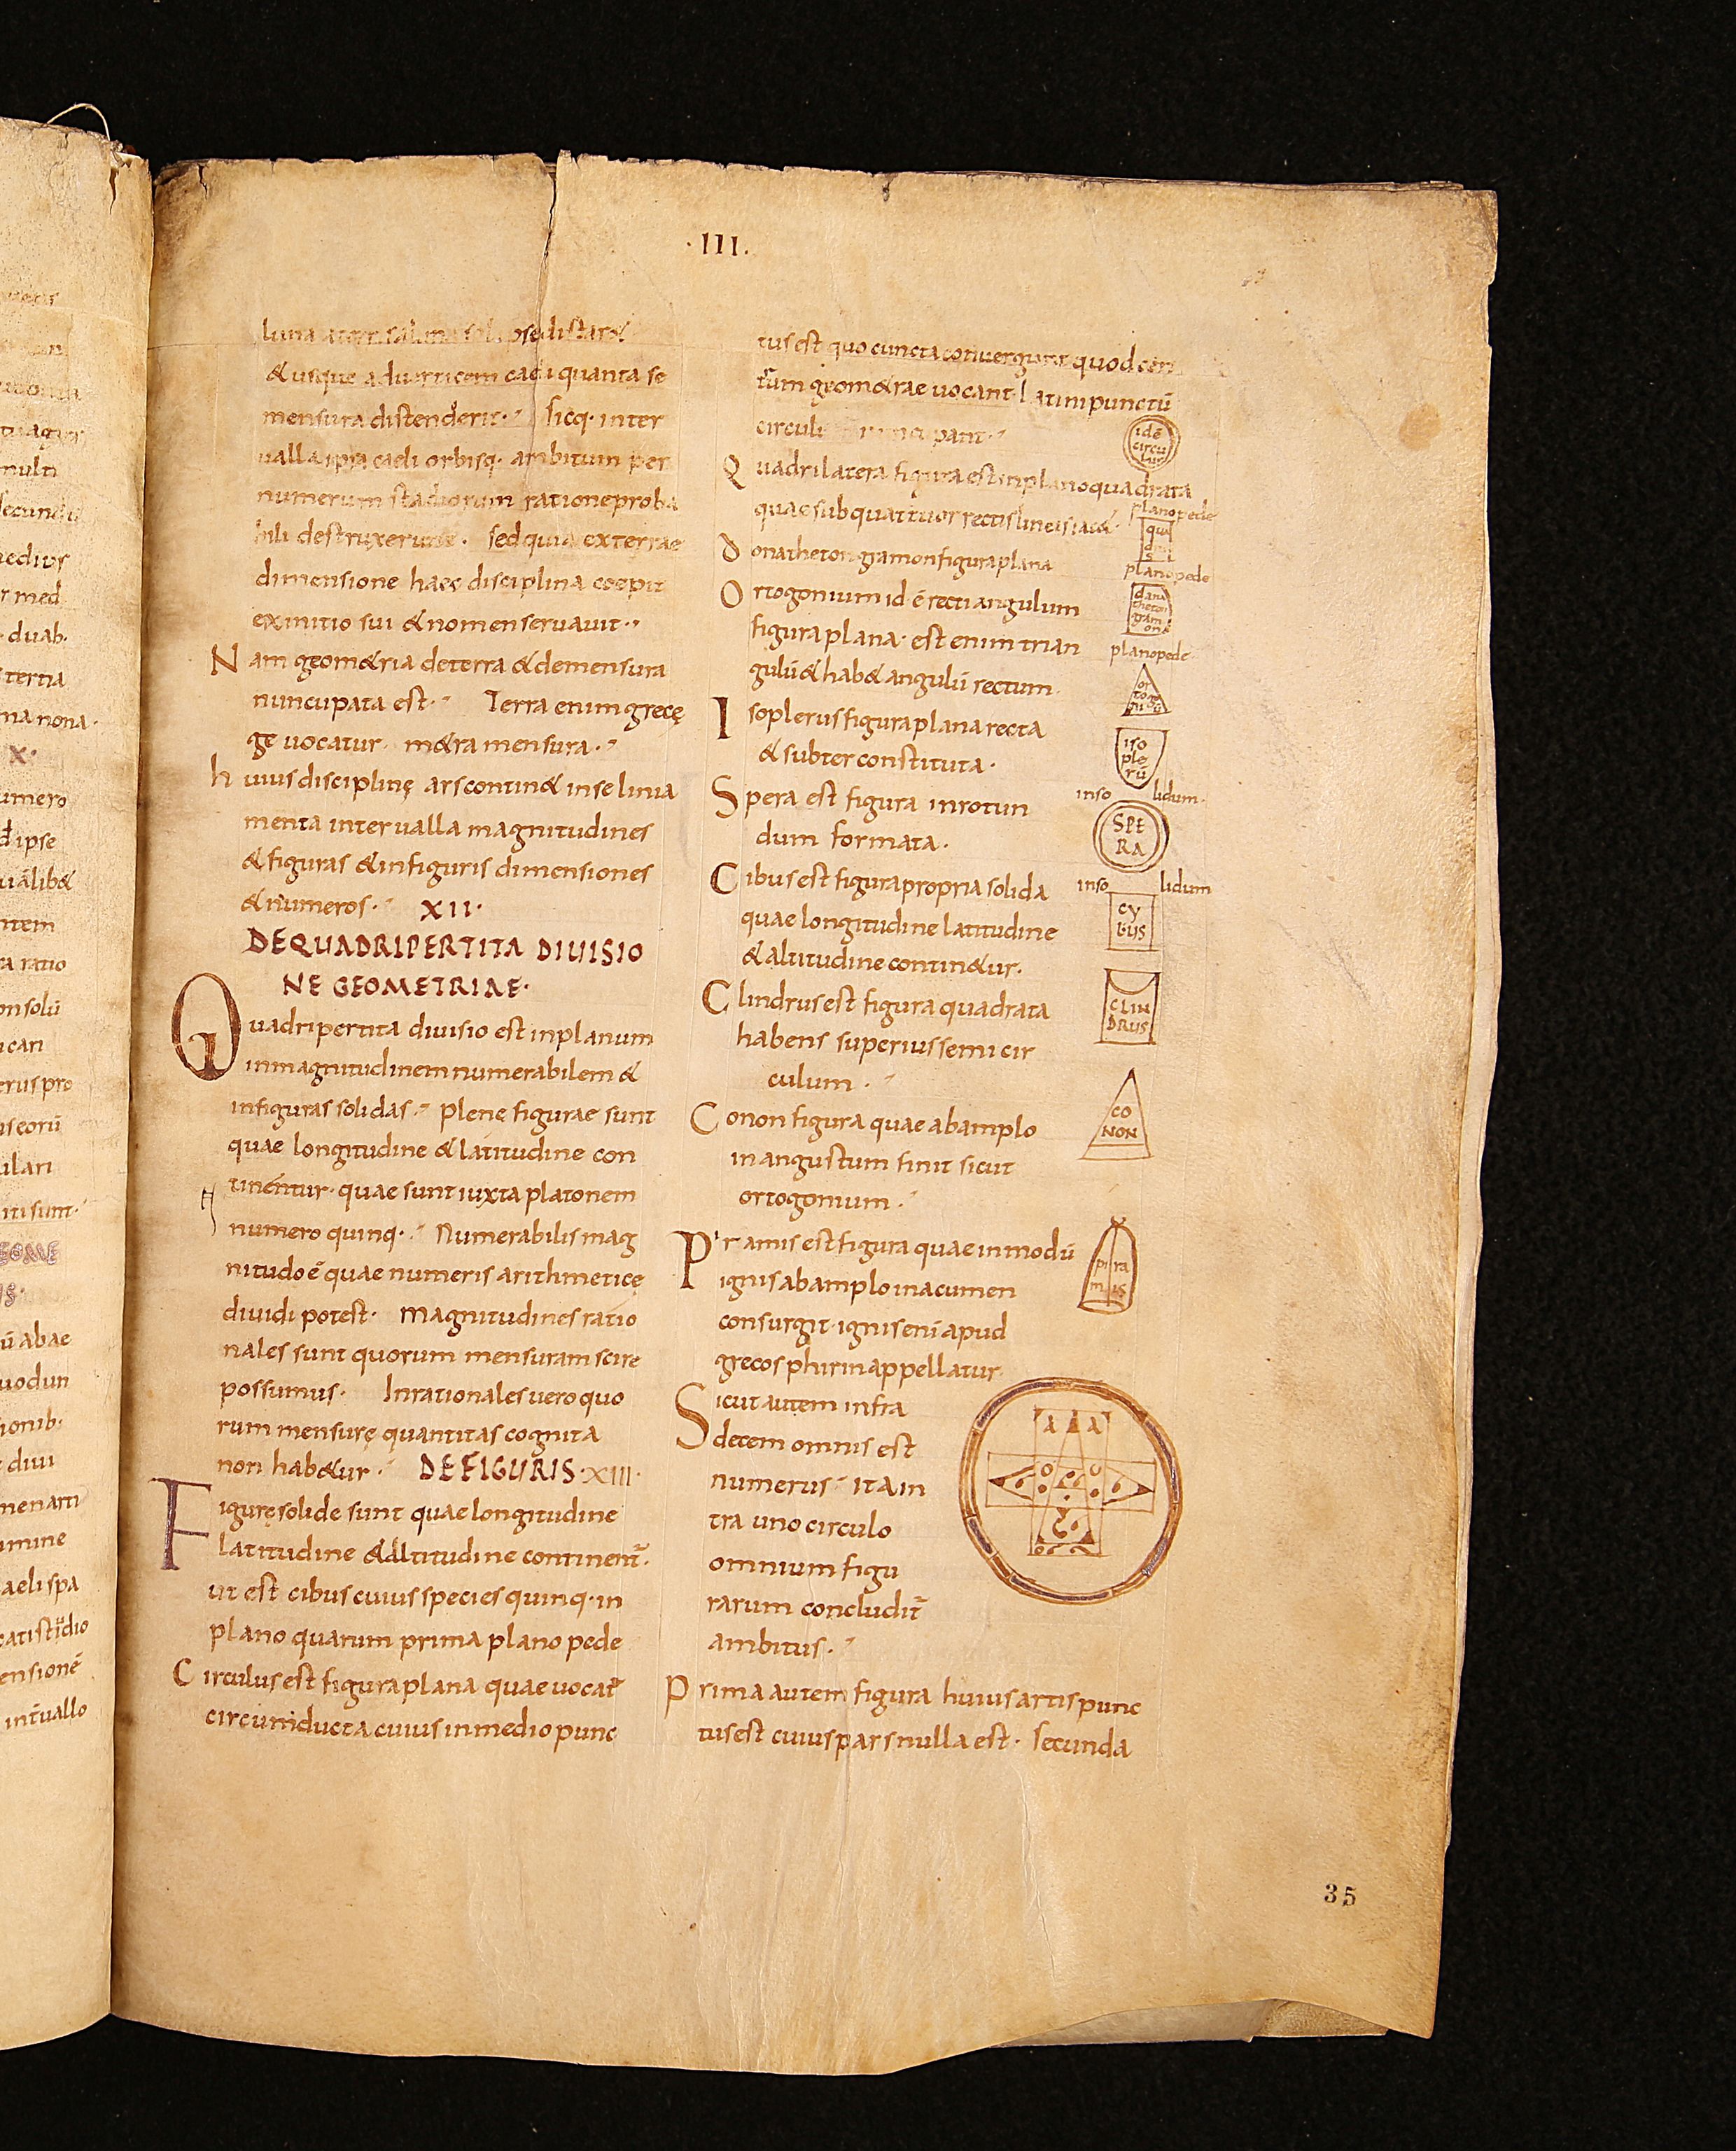 ·III.
luna a terra sol ipse distar&
& usque aduerticem caeli quanta se
mensura distenderit· sicq· inter
ualla ipsa caeli orbisq· ambitum per
numerum stadiorum ratione proba
bili destruxerunt· sed quia ex terrae
dimensione haec disciplina coepit
ex initio sui & nomen seruauit··
Nam geom&ria de terra & de mensura
nuncupata est· Terra enim grecę
ge uocatur· m&ra mensura·
huius disciplinę ars contin& in se linia
menta interualla magnitudines
& figuras & in figuris dimensiones
& numeros· XII·
DE QUADRIPERTITA DIUISIO
NE GEOMETRIAE·
Quadripertita diuisio est in planum
in magnitudinem numerabilem &
in figuras solidas· plenę figurae sunt
quae longitudine & latitudine con
tinéntur· quae sunt iuxta platonem
numero quinq·· Numerabilis mag
nitudo ē quae numeris arithmeticę
diuidi potest· Magnitudines ratio
nales sunt quorum mensuram scire
possumus· Inrationales uero quo
rum mensurę quantitas cognita
non hab&ur· DE FIGURIS·XIII·
Figurę solide sunt quae longitudine
latitudine & altitudine continent̄·
ut est cibus cuius species quinq· in
plano quarum prima plano pede
Circulus est figura plana quae uocat̄
circumducta cuius in medio punc
tus est quo cuncta conuergunt quod cen
trum geom&rae uocant· Latini punctū
circuli nuncupant·
idē
circu
lus
Quadrilatera figura est in plano quadrata
quae sub quattuor rectis lineis iac&·
planopede
qua
planopede
Donatheton gramon figura plana
dana
theton
gram
on
Ortogonium id ē recti angulum
figura plana· est enim trian
gulū & hab& angulū rectum·
planopede
or
togo
niū
Isoplerus figura plana recta
& subter constituta·
iso
ple
rū
Spera est figura in rotun
dum formata·
inso lidum·
SPE
RA
Cibus est figura propria solida
quae longitudine latitudine
& altitudine contin&ur·
inso lidum
CY
BUS
Clindrus est figura quadrata
habens superius semicir
culum·
CLIN
DRUS
Conon figura quae ab amplo
in angustum finit sicut
ortogonium·
CO
NON
Piramis est figura quae in modū
ignis ab amplo in acumen
consurgit· ignis eni apud
grecos phirin appellatur
pi ra
m is
Sicut autem infra
decem omnis est
numerus· Ita in
tra uno circulo
omnium figu
rarum concludit̄
ambitus·
A A
Prima autem figura huius artis punc
tus est cuius pars nulla est· Secunda
35